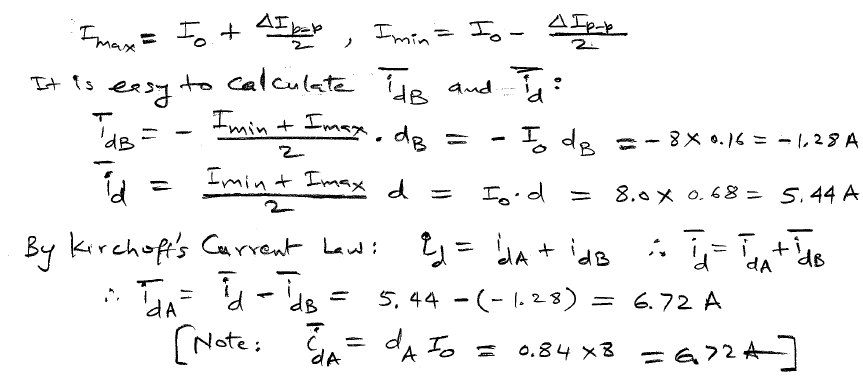 I_max = I_o + ΔI_p-p/2 , I_min = I_o - ΔI_p-p/2
It is easy to calculate i̅_dB and i̅_d :
i̅_dB = - (I_min + I_max)/2 . d_B = - I_o d_B = - 8 × 0.16 = -1.28 A
i̅_d = (I_min + I_max)/2 d = I_o . d = 8.0 × 0.68 = 5.44 A
By Kirchoff's Current Law : i_d = i_dA + i_dB ∴ i̅_d = i̅_dA + i̅_dB
∴ i̅_dA = i̅_d - i̅_dB = 5.44 - (-1.28) = 6.72 A
[Note: i̅_dA = d_A I_o = 0.84 × 8 = 6.72 A]